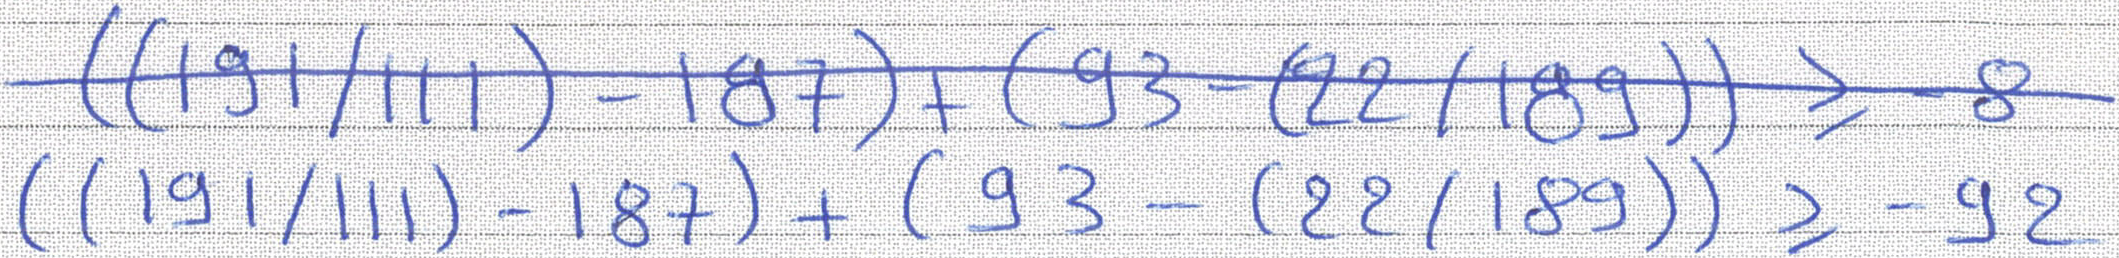 ((191/111)-187)+(93-(22/189)) ≥ -8
((191/111)-187)+(93-(22/189)) ≥ -92